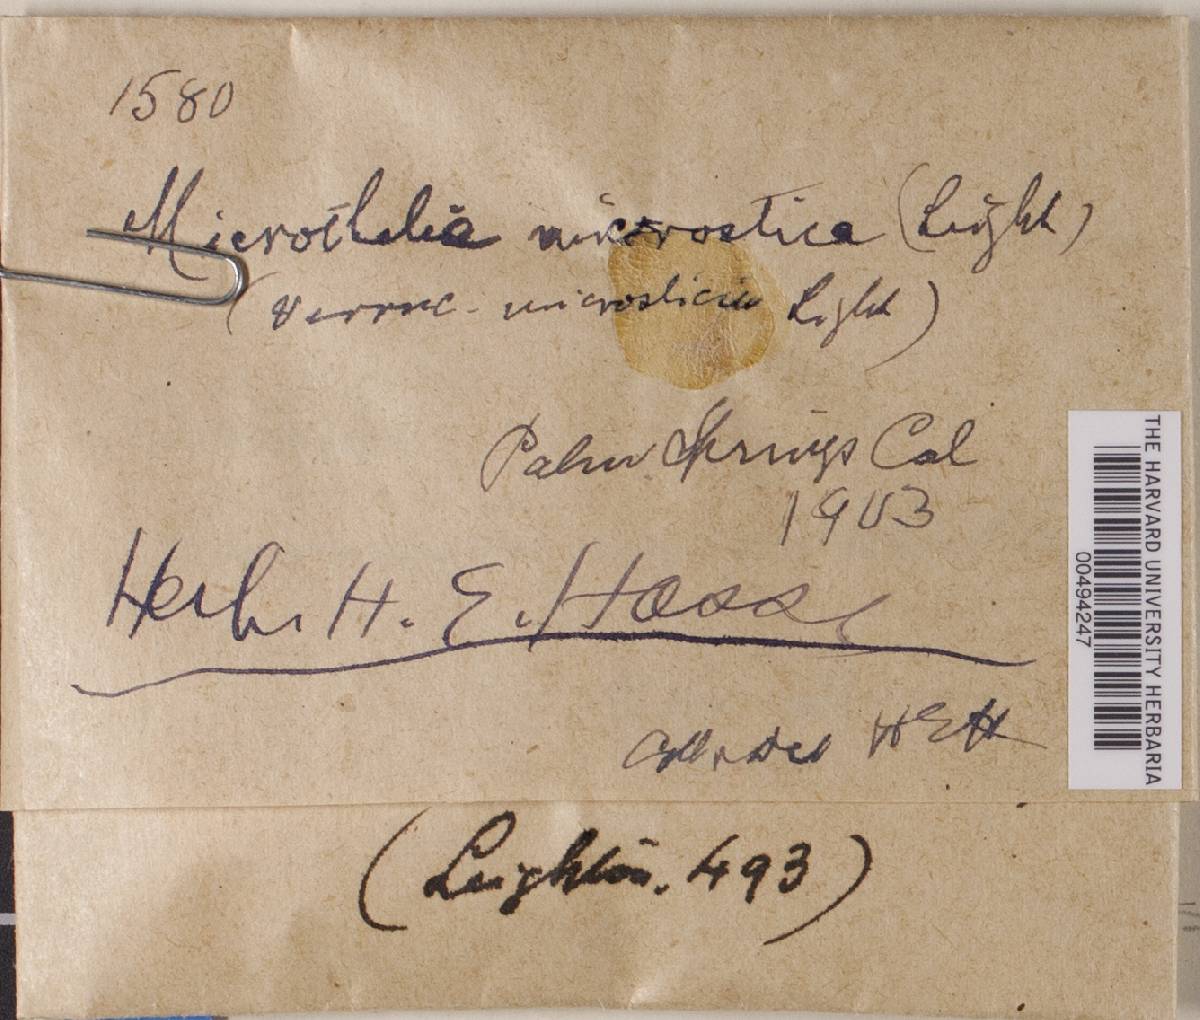 1580
Microthelia microstica (Leight)
(Verruc. microsticia Light)
Palm Springs Cal
1903
Herb. H. E. Hasse
Coll & det HEH
(Leighton. 493)
THE HARVARD UNIVERSITY HERBARIA
00494247